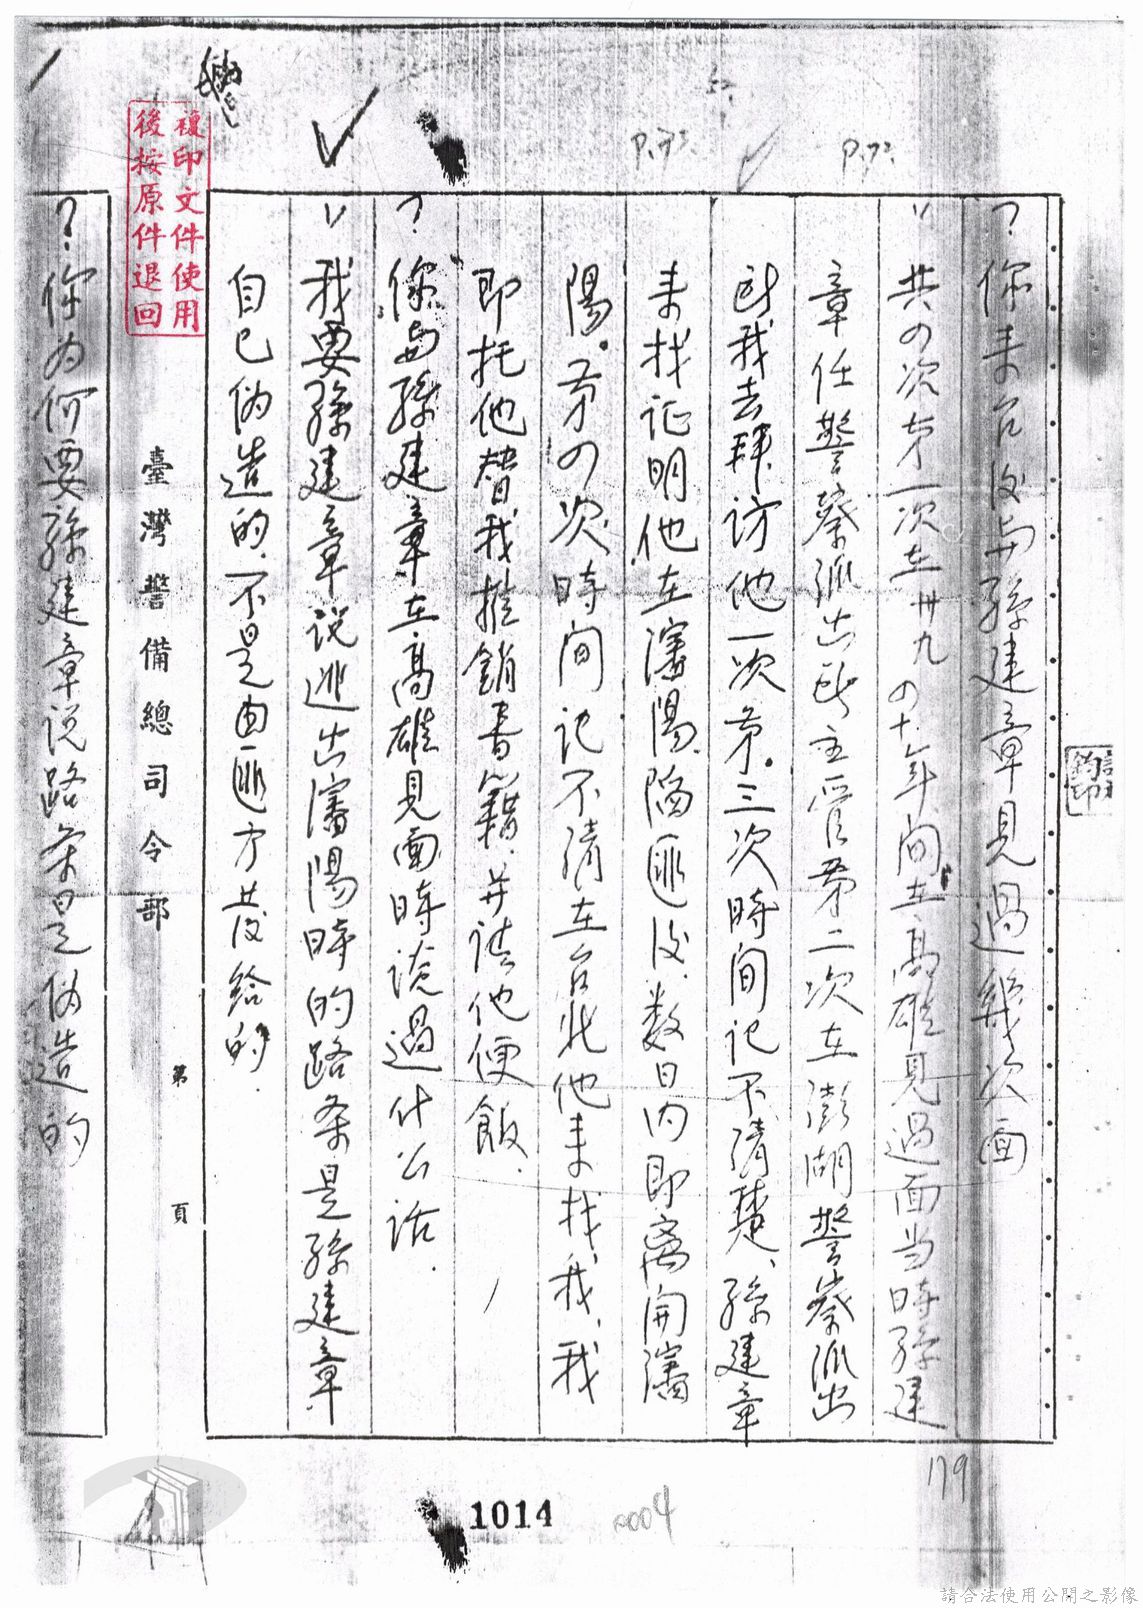 ?你来台後与孫建章見過幾次面
:共の次第一次在卅九、の十年间在高雄見過面当時孫建
章任警察派出所主管第二次在澎湖警察派出
所我去拜访他一次第三次時间记不清楚、孫建章
来找证明他在瀋陽陷匪後、数日内即离開瀋
陽。第の次時间记不清在台北他来找我、我
即托他替我推銷書籍、并請他便飯.
?你与孫建章在高雄見面時谈過什么话.
:我要孫建章说逃出瀋陽時的路条是孫建章
自己伪造的.不是由匪方发给的.
臺灣警備總司令部
第 頁
複印文件使用
後按原件退回
?.你为何要孫建章说路条是伪造的
P.72.
P.72.
179
1014
0004
請合法使用公開之影像